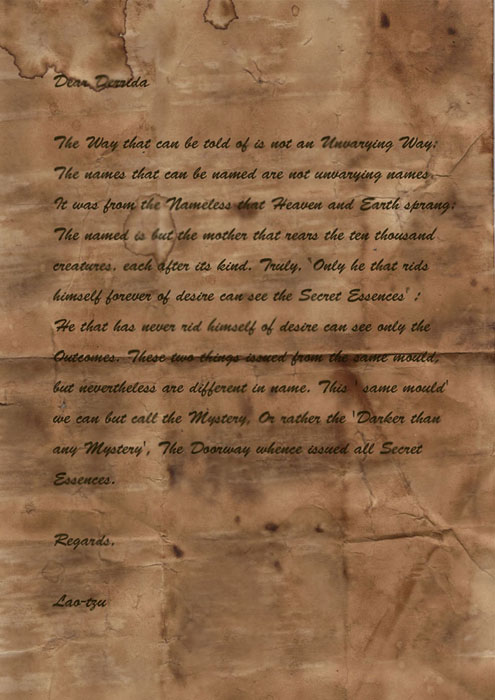 Dear Derrida
The Way that can be told of is not an Unvarying Way;
The names that can be named are not unvarying names
It was from the Nameless that Heaven and Earth sprang;
The named is but the mother that rears the ten thousand
creatures, each after its kind. Truly, 'Only he that rids
himself forever of desire can see the Secret Essences' ;
He that has never rid himself of desire can see only the
Outcomes. These two things issued from the same mould,
but nevertheless are different in name. This ' same mould'
we can but call the Mystery, Or rather the 'Darker than
any Mystery', The Doorway whence issued all Secret
Essences.
Regards,
Lao-tzu